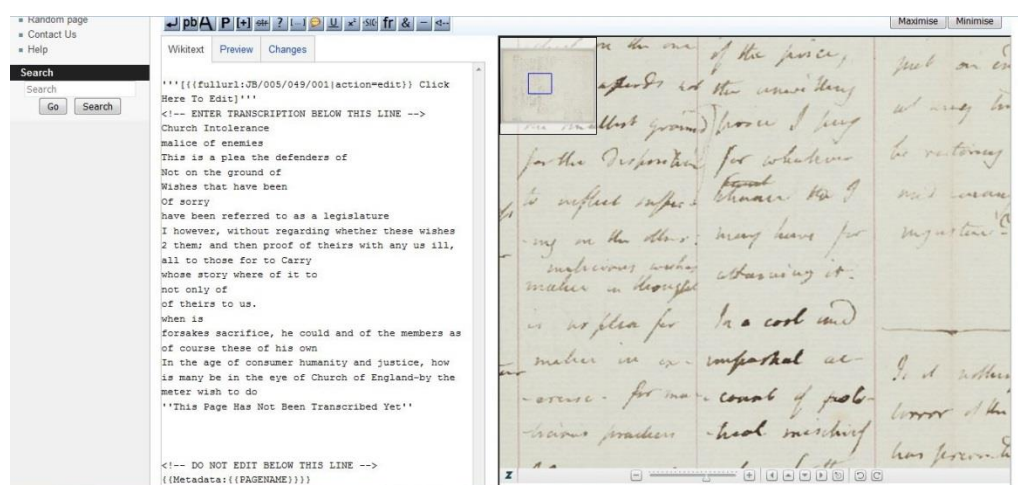 Random page
Contact Us
Help
Search
Search
Go Search
pb A P [+] str ? [...] U x² SIC fr & —
Wikitext Preview Changes
'''[{{fullurl:JB/005/049/001|action=edit}} Click
Here To Edit]'''
<!-- ENTER TRANSCRIPTION BELOW THIS LINE -->
Church Intolerance
malice of enemies
This is a plea the defenders of
Not on the ground of
Wishes that have been
Of sorry
have been referred to as a legislature
I however, without regarding whether these wishes
2 them; and then proof of theirs with any us ill,
all to those for to Carry
whose story where of it to
not only of
of theirs to us.
when is
forsakes sacrifice, he could and of the members as
of course these of his own
In the age of consumer humanity and justice, how
is many be in the eye of Church of England-by the
meter wish to do
''This Page Has Not Been Transcribed Yet''
<!-- DO NOT EDIT BELOW THIS LINE -->
{{Metadata:{{PAGENAME}}}}
Maximise Minimise
on the one
affords not
smallest ground
for the Disposition
to inflict suffer-
-ing on the other:
malicious wishes
malice in thought
is no plea for
malice in ex-
-ercise. for ma-
-licious practices
of the price,
the unwilling
price I pay
for whatever
chance tho I
may have for
obtaining it.
In a cool and
impartial ac-
-count of poli-
-tical mischief
Is it nothing
terror of the
has